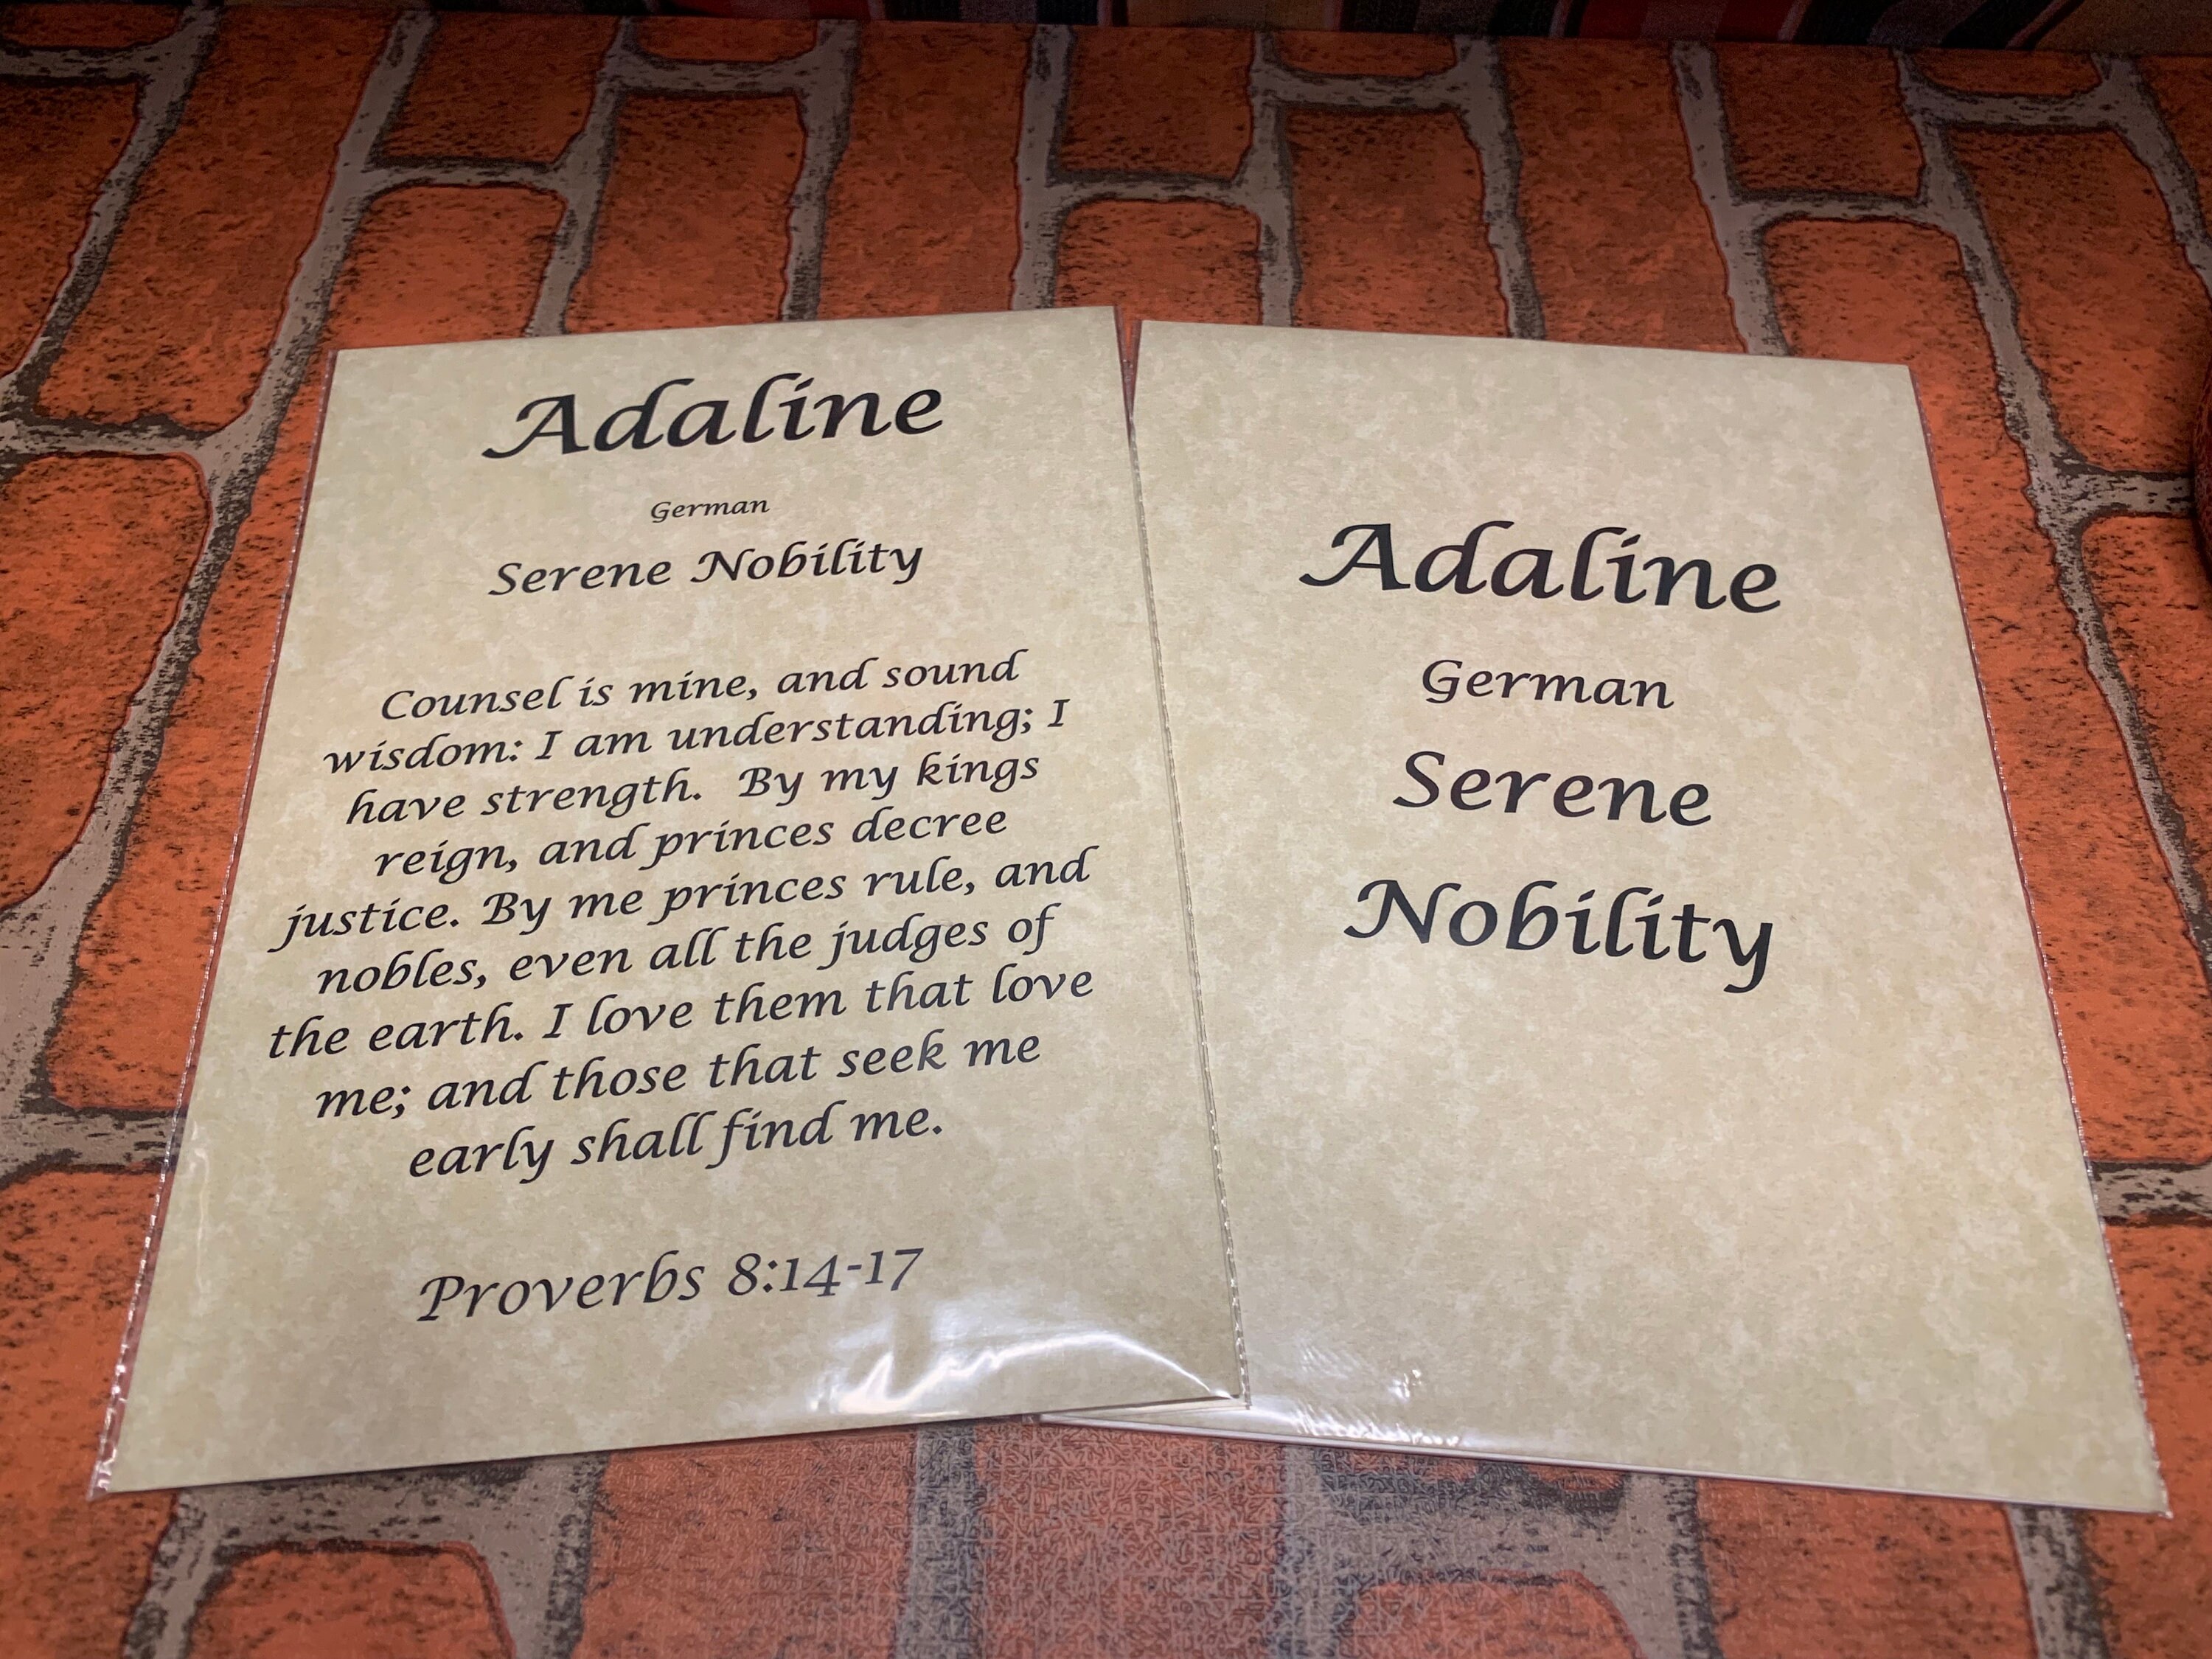 Adaline
German
Serene Nobility
Counsel is mine, and sound
wisdom: I am understanding; I
have strength. By my kings
reign, and princes decree
justice. By me princes rule, and
nobles, even all the judges of
the earth. I love them that love
me; and those that seek me
early shall find me.
Proverbs 8:14-17
Adaline
German
Serene
Nobility